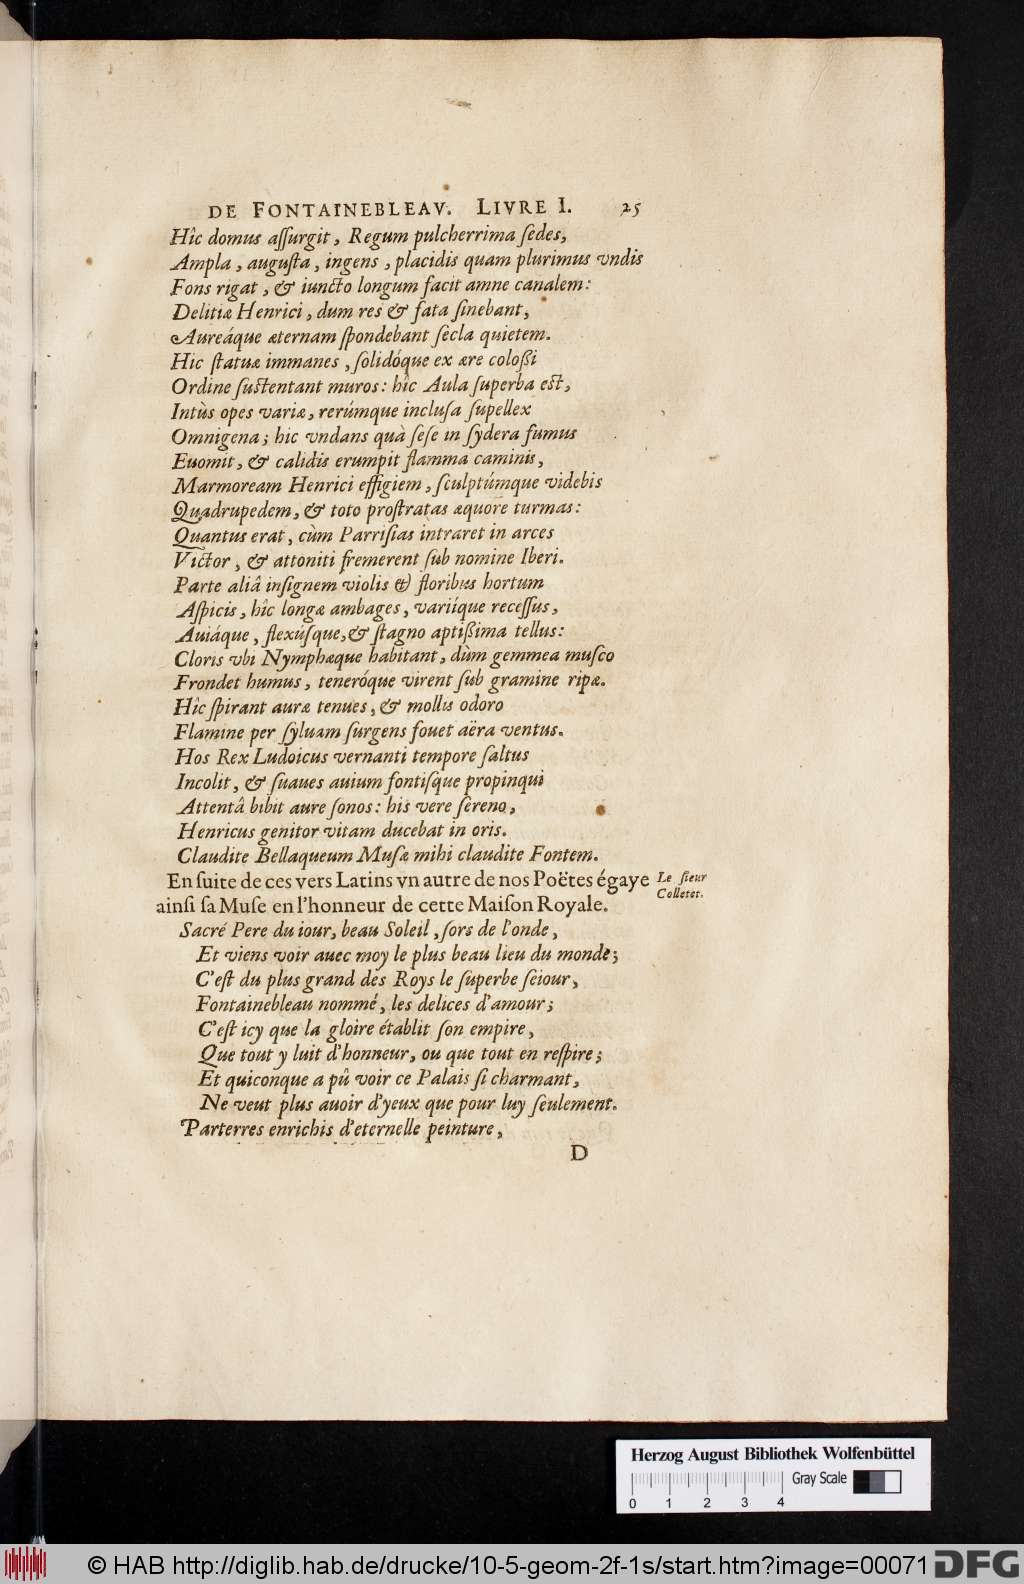 DE FONTAINEBLEAV. LIVRE I. 25
Hîc domus aſſurgit, Regum pulcherrima ſedes,
Ampla, auguſta, ingens, placidis quam plurimus vndis
Fons rigat, & iuncto longum facit amne canalem:
Delitiæ Henrici, dum res & fata ſinebant,
Aureáque æternam ſpondebant ſecla quietem.
Hic ſtatuæ immanes, ſolidóque ex ære coloßi
Ordine ſuſtentant muros: hîc Aula ſuperba eſt,
Intùs opes variæ, rerúmque incluſa ſupellex
Omnigena; hic vndans quà ſeſe in ſydera fumus
Euomit, & calidis erumpit flamma caminis,
Marmoream Henrici effigiem, ſculptúmque videbis
Quadrupedem, & toto proſtratas æquore turmas:
Quantus erat, cùm Parriſias intraret in arces
Victor, & attoniti fremerent ſub nomine Iberi.
Parte aliâ inſignem violis & floribus hortum
Aſpicis, hîc longæ ambages, variíque receſſus,
Auiáque, flexúſque, & ſtagno aptißima tellus:
Cloris vbi Nymphæque habitant, dùm gemmea muſco
Frondet humus, teneróque virent ſub gramine ripæ.
Hîc ſpirant auræ tenues, & mollis odoro
Flamine per ſyluam ſurgens fouet aëra ventus.
Hos Rex Ludoicus vernanti tempore ſaltus
Incolit, & ſuaues auium fontiſque propinqui
Attentâ bibit aure ſonos: his vere ſereno,
Henricus genitor vitam ducebat in oris.
Claudite Bellaqueum Muſæ mihi claudite Fontem.
En ſuite de ces vers Latins vn autre de nos Poëtes égaye Le ſieur
ainſi ſa Muſe en l'honneur de cette Maiſon Royale. Colletet.
Sacré Pere du iour, beau Soleil, ſors de l'onde,
Et viens voir auec moy le plus beau lieu du monde;
C'eſt du plus grand des Roys le ſuperbe ſeiour,
Fontainebleau nommé, les delices d'amour;
C'eſt icy que la gloire établit ſon empire,
Que tout y luit d'honneur, ou que tout en reſpire;
Et quiconque a pû voir ce Palais ſi charmant,
Ne veut plus auoir d'yeux que pour luy ſeulement.
Parterres enrichis d'eternelle peinture,
D
Herzog August Bibliothek Wolfenbüttel
Gray Scale
0 1 2 3 4
© HAB http://diglib.hab.de/drucke/10-5-geom-2f-1s/start.htm?image=00071 DFG